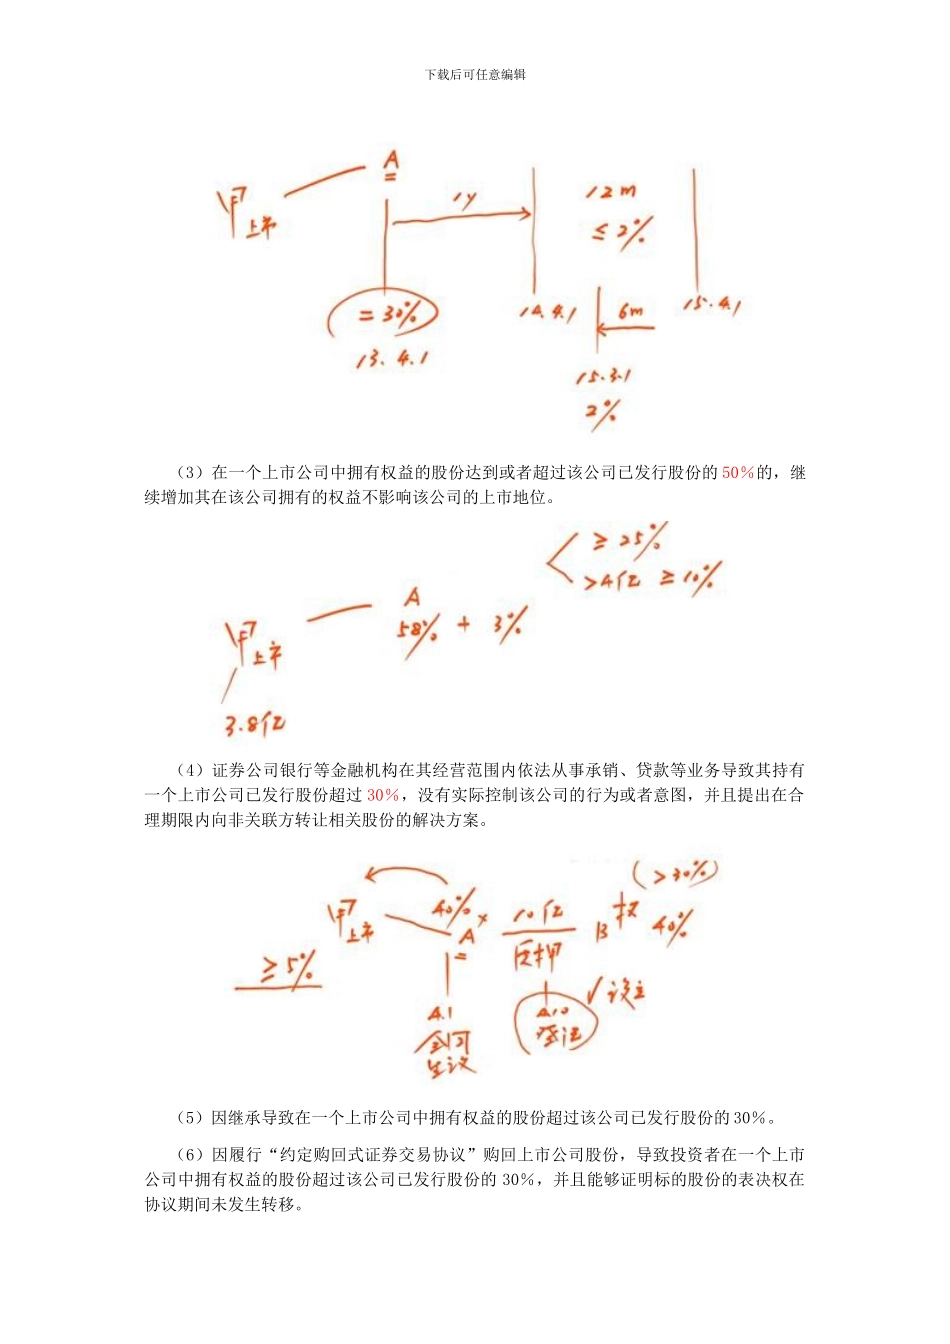 下载后可任意编辑
A
甲上市
1y
12m
≤2%
=30%
13.4.1
14.4.1
6m
15.4.1
15.3.1
2%
（3）在一个上市公司中拥有权益的股份达到或者超过该公司已发行股份的 50%的，继
续增加其在该公司拥有的权益不影响该公司的上市地位。
≥25%
>4亿 ≥10%
A
58% + 3%
甲上市
3.8亿
（4）证券公司银行等金融机构在其经营范围内依法从事承销、贷款等业务导致其持有
一个上市公司已发行股份超过 30%，没有实际控制该公司的行为或者意图，并且提出在合
理期限内向非关联方转让相关股份的解决方案。
(>30%)
甲上市
40%
A
10亿
质押
B
权
40%
≥5%
4.1
合同
生效
4.10
登记
√设立
（5）因继承导致在一个上市公司中拥有权益的股份超过该公司已发行股份的 30%。
（6）因履行“约定购回式证券交易协议”购回上市公司股份，导致投资者在一个上市
公司中拥有权益的股份超过该公司已发行股份的 30%，并且能够证明标的股份的表决权在
协议期间未发生转移。